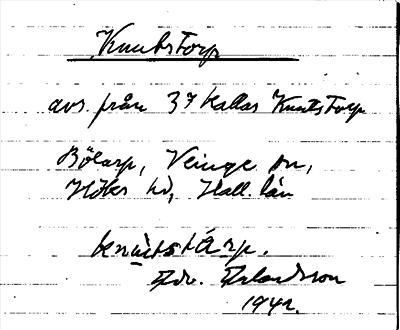 Knutstorp
avs. från 37 kallas Knutstorp
Bölarp, Veinge sn,
Höks hd, Hall. län
knùtstárp.
Adv. Erlandsson
1941.